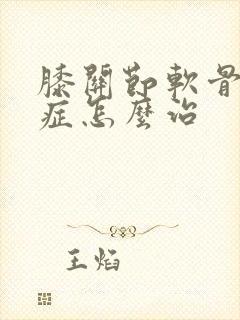 膝關節軟骨
症怎麼治
王焰